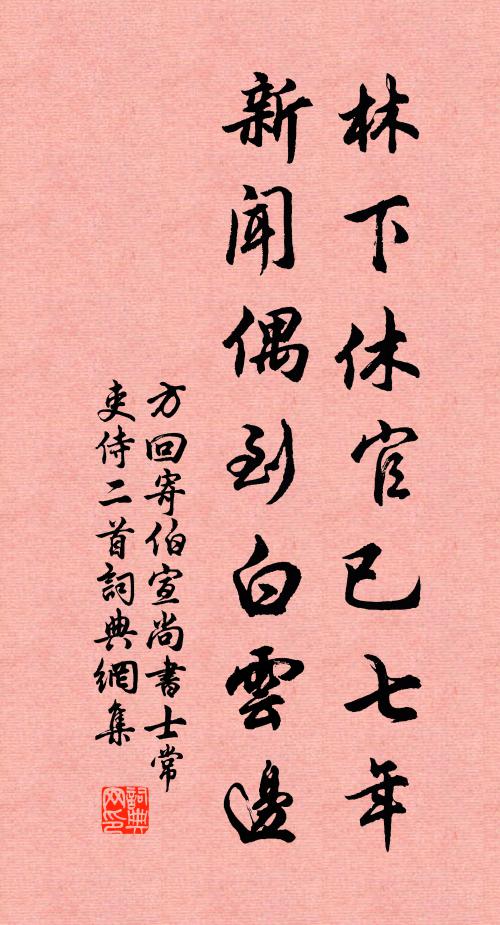 林下休官已七年
新聞偶到白雲邊
方回寄伯宣尚書士常
吏侍二首詞典網集
詞典
网印